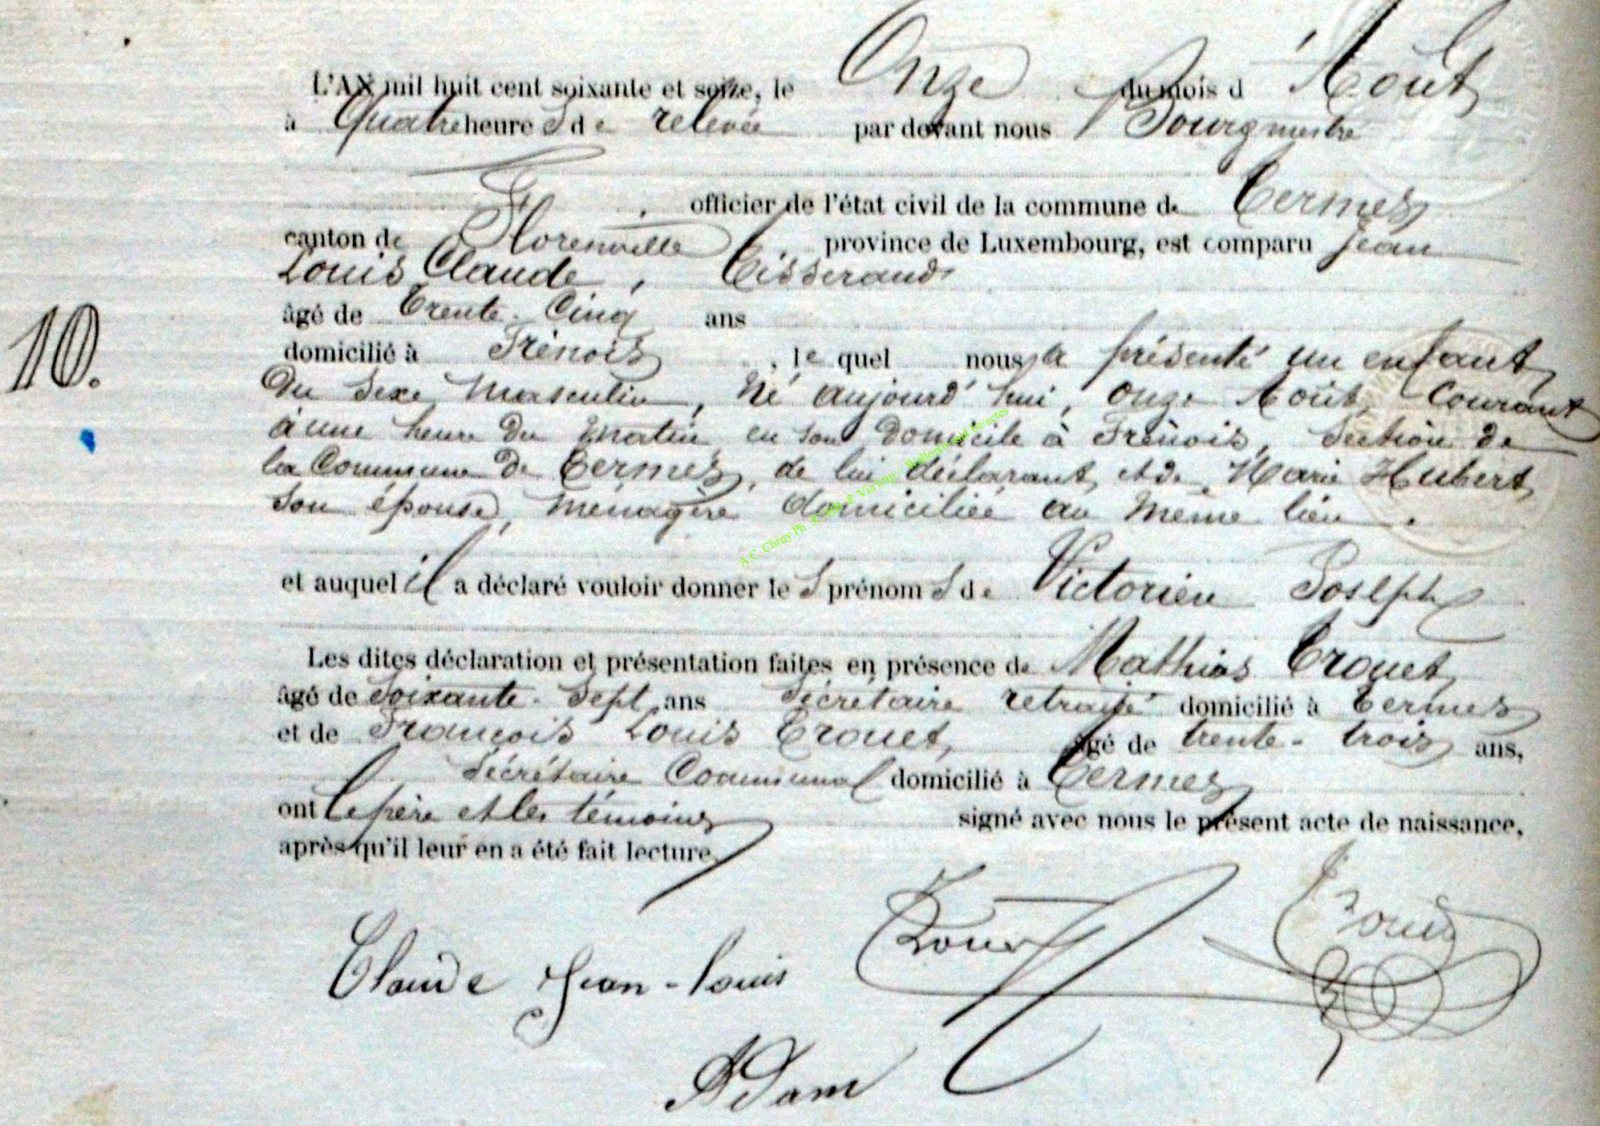 L'AN mil huit cent soixante et seize, le Onze du mois d'Août
à Quatre heures de relevée par devant nous Bourgmestre
officier de l'état civil de la commune de Termes
canton de Florenville, province de Luxembourg, est comparu Jean
Louis Claude, Tisserand
âgé de Trente-Cinq ans
10.
domicilié à Frénois, lequel nous a présenté un enfant
du sexe masculin, né aujourd'hui, onze Août Courant
à une heure du matin en son domicile à Frénois, Section de
la Commune de Termes, de lui déclarant et de Marie Hubert
son épouse, ménagère domiciliée au même lieu.
et auquel il a déclaré vouloir donner les prénoms de Victorien Joseph
Les dites déclaration et présentation faites en présence de Mathias Trouet
âgé de Soixante-Sept ans Secrétaire retraité domicilié à Termes
et de François Louis Trouet, âgé de trente-trois ans,
Secrétaire Communal domicilié à Termes
ont le père et les témoins signé avec nous le présent acte de naissance,
après qu'il leur en a été fait lecture.
Claude Jean-louis
Adam